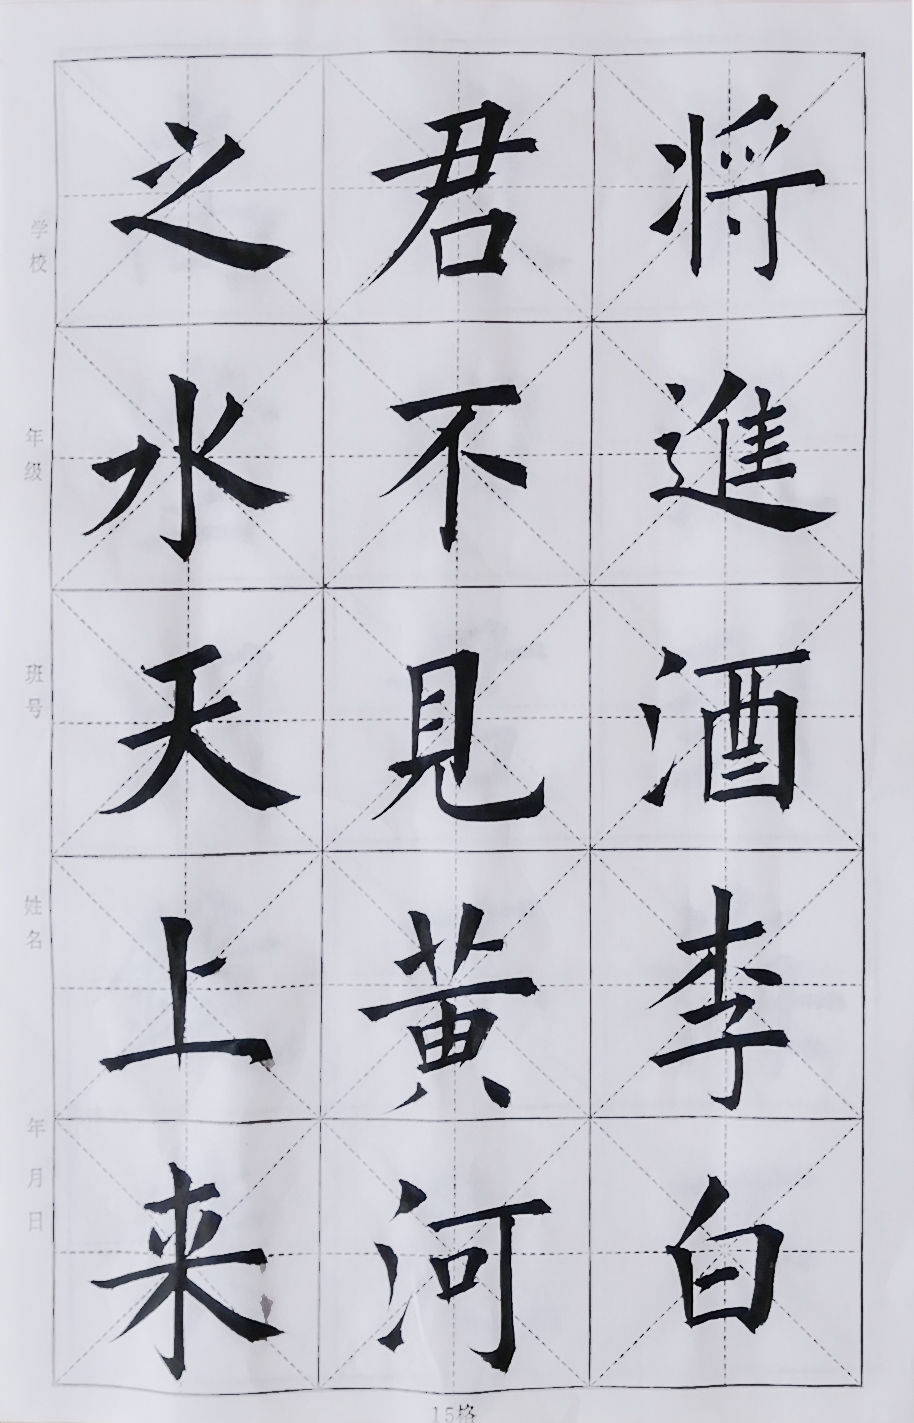 将進酒李白
君不見黄河
之水天上来
学校
年级
班号
姓名
年月日
15格